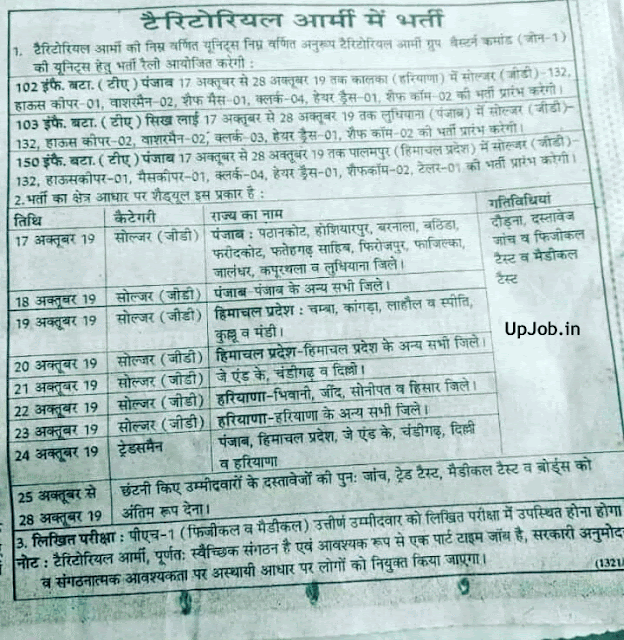 टैरिटोरियल आर्मी में भर्ती
1. टैरिटोरियल आर्मी की निम्न वर्णित यूनिट्स निम्न वर्णित अनुरूप टैरिटोरियल आर्मी ग्रुप वैस्टर्न कमांड (जोन-1)
की यूनिट्स हेतु भर्ती रैली आयोजित करेगी :
102 इंफै. बटा. (टीए) पंजाब 17 अक्तूबर से 28 अक्तूबर 19 तक कालका (हरियाणा) में सोल्जर (जीडी)-132,
हाऊस कीपर-01, वाशरमैन-02, शैफ मैस-01, क्लर्क-04, हेयर ड्रैस-01, शैफ कॉम-02 की भर्ती प्रारंभ करेगी।
103 इंफै. बटा. (टीए) सिख लाई 17 अक्तूबर से 28 अक्तूबर 19 तक लुधियाना (पंजाब) में सोल्जर (जीडी)-
132, हाऊस कीपर-02, वाशरमैन-02, क्लर्क-03, हेयर ड्रैस-01, शैफ कॉम-02 की भर्ती प्रारंभ करेगी।
150 इंफै. बटा. (टीए) पंजाब 17 अक्तूबर से 28 अक्तूबर 19 तक पालमपुर (हिमाचल प्रदेश) में सोल्जर (जीडी)-
132, हाऊसकीपर-01, मैसकीपर-01, क्लर्क-04, हेयर ड्रैस-01, शैफकॉम-02, टेलर-01 की भर्ती प्रारंभ करेगी।
2. भर्ती का क्षेत्र आधार पर शैड्यूल इस प्रकार है :
तिथि कैटेगरी राज्य का नाम गतिविधियां
17 अक्तूबर 19 सोल्जर (जीडी) पंजाब : पठानकोट, होशियारपुर, बरनाला, बठिंडा, दौड़ना, दस्तावेज
फरीदकोट, फतेहगढ़ साहिब, फिरोजपुर, फाजिल्का, जांच व फिजीकल
जालंधर, कपूरथला व लुधियाना जिले। टैस्ट व मैडीकल
18 अक्तूबर 19 सोल्जर (जीडी) पंजाब-पंजाब के अन्य सभी जिले। टैस्ट
19 अक्तूबर 19 सोल्जर (जीडी) हिमाचल प्रदेश : चम्बा, कांगड़ा, लाहौल व स्पीति,
कुल्लू व मंडी।
UpJob.in
20 अक्तूबर 19 सोल्जर (जीडी) हिमाचल प्रदेश-हिमाचल प्रदेश के अन्य सभी जिले।
21 अक्तूबर 19 सोल्जर (जीडी) जे एंड के, चंडीगढ़ व दिल्ली।
22 अक्तूबर 19 सोल्जर (जीडी) हरियाणा-भिवानी, जींद, सोनीपत व हिसार जिले।
23 अक्तूबर 19 सोल्जर (जीडी) हरियाणा-हरियाणा के अन्य सभी जिले।
24 अक्तूबर 19 ट्रेडसमैन पंजाब, हिमाचल प्रदेश, जे एंड के, चंडीगढ़, दिल्ली
व हरियाणा
25 अक्तूबर से छंटनी किए उम्मीदवारों के दस्तावेजों की पुनः जांच, ट्रेड टैस्ट, मैडीकल टैस्ट व बोर्ड्स को
28 अक्तूबर 19 अंतिम रूप देना।
3. लिखित परीक्षा : पीएच-1 (फिजीकल व मैडीकल) उत्तीर्ण उम्मीदवार को लिखित परीक्षा में उपस्थित होना होगा
नोट : टैरिटोरियल आर्मी, पूर्णतः स्वैच्छिक संगठन है एवं आवश्यक रूप से एक पार्ट टाइम जांब है, सरकारी अनुमोद
व संगठनात्मक आवश्यकता पर अस्थायी आधार पर लोगों को नियुक्त किया जाएगा।
(1321/